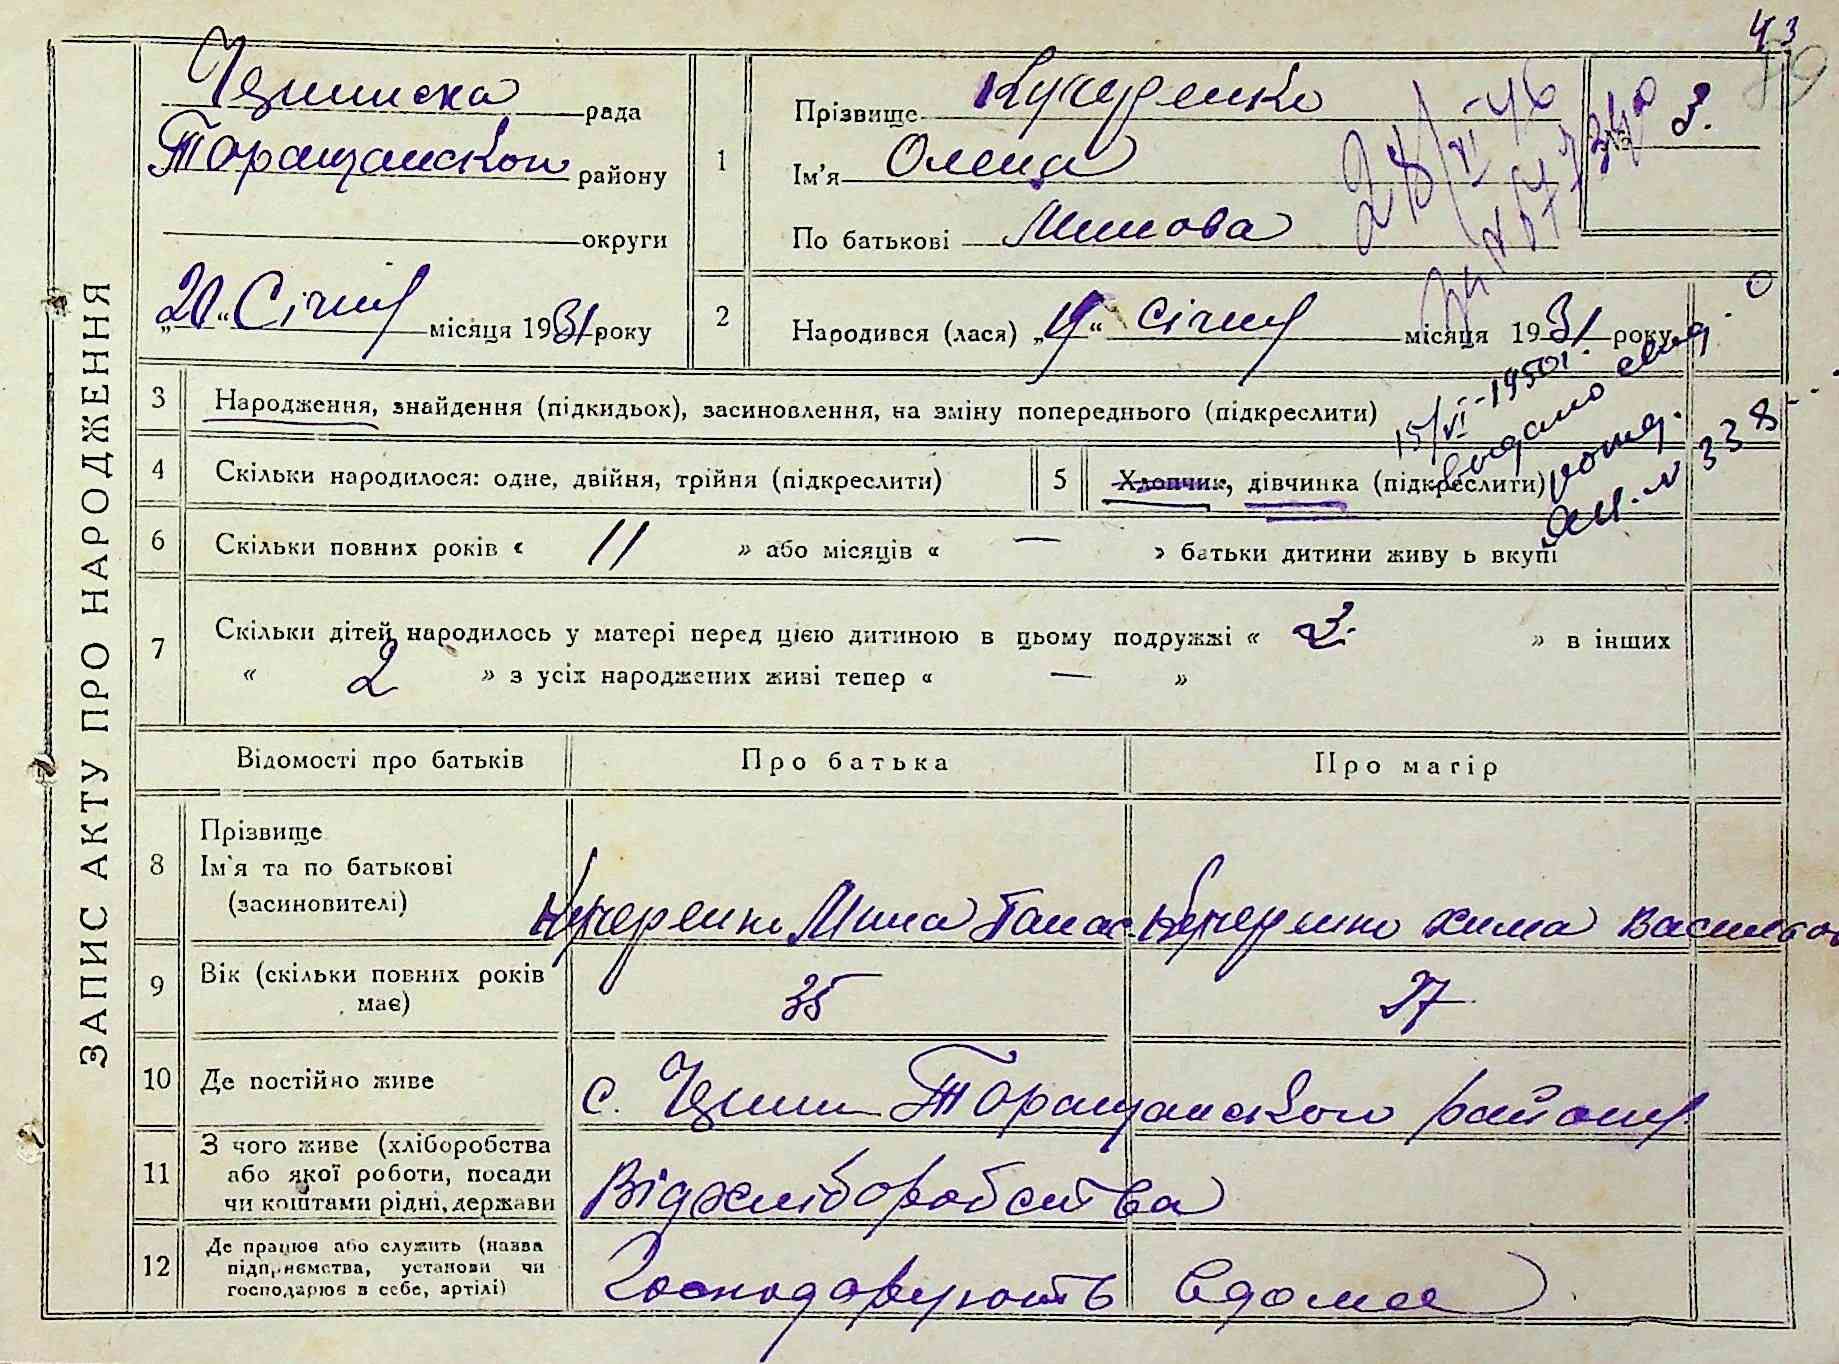 43
89
ЗАПИС АКТУ ПРО НАРОДЖЕННЯ
рада
Таращанского району
округи
„20“ Січня місяця 1931 року
1
Прізвище Кучеренко
Ім'я Олена
По батькові Минова
№ 3.
28/VI-46
2
Народився (лася) „ “ січня місяця 1931 року
15/VI-1950г.
видано свид.
338
3
Народження, знайдення (підкидьок), засиновлення, на зміну попереднього (підкреслити)
4
Скільки народилося: одне, двійня, трійня (підкреслити)
5
Хлопчик, дівчинка (підкреслити)
6
Скільки повних років « 11 » або місяців « — » батьки дитини живу ь вкупі
7
Скільки дітей народилось у матері перед цією дитиною в цьому подружжі « 3. » в інших
« 2 » з усіх народжених живі тепер « — »
Відомості про батьків
Про батька
Про матір
8
Прізвище
Ім'я та по батькові
(засиновителі)
Кучеренко Мина Панас
Кучеренко Хима Васильов
9
Вік (скільки повних років
має)
35
27
10
Де постійно живе
с. Таращанского району
11
З чого живе (хліборобства
або якої роботи, посади
чи коштами рідні, держави
Від хліборобства
12
Де працює або служить (назва
підприємства, установи чи
господарює в себе, артілі)
Господарують вдома